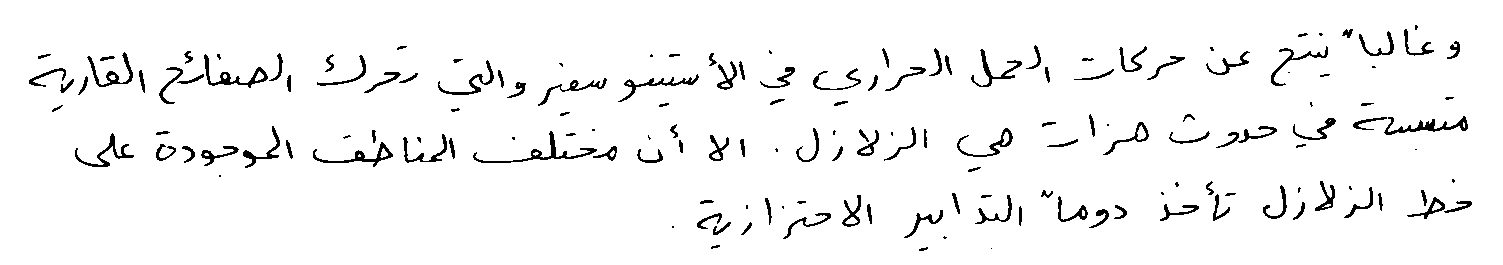 وغالباً ينتج عن حركات الحمل الحراري في الأستينوسفير والتي تحرك الصفائح القارية
متسببة في حدوث هزات هي الزلازل. الا أن مختلف المناطق الموجودة على
خط الزلازل تأخذ دوماً التدابير الاحترازية.